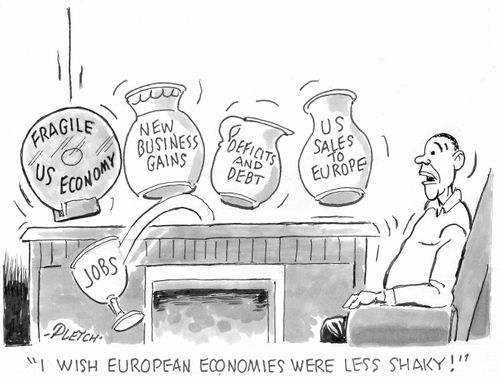 FRAGILE
US ECONOMY
NEW
BUSINESS
GAINS
DEFICITS
AND
DEBT
US
SALES
TO
EUROPE
JOBS
-PLETCH-
"I WISH EUROPEAN ECONOMIES WERE LESS SHAKY!"